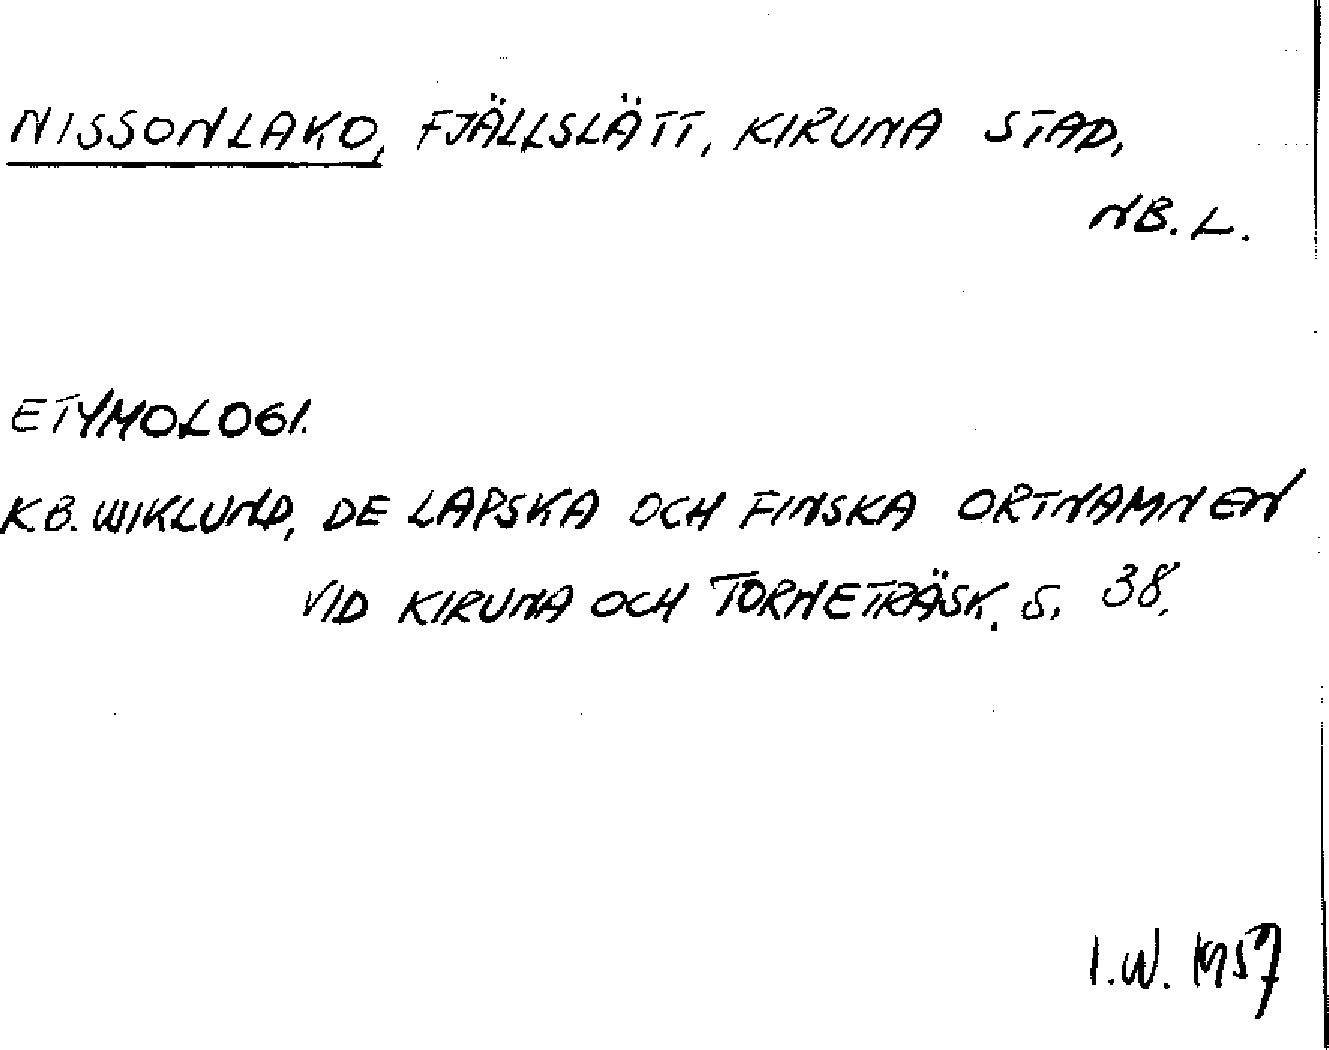 NISSONLAKO, FJÄLLSLÄTT, KIRUNA STAD,
NB. L.
ETYMOLOGI.
KB. WIKLUND, DE LAPSKA OCH FINSKA ORTNAMNEN
VID KIRUNA OCH TORNETRÄSK. S. 38.
I.W. 1957